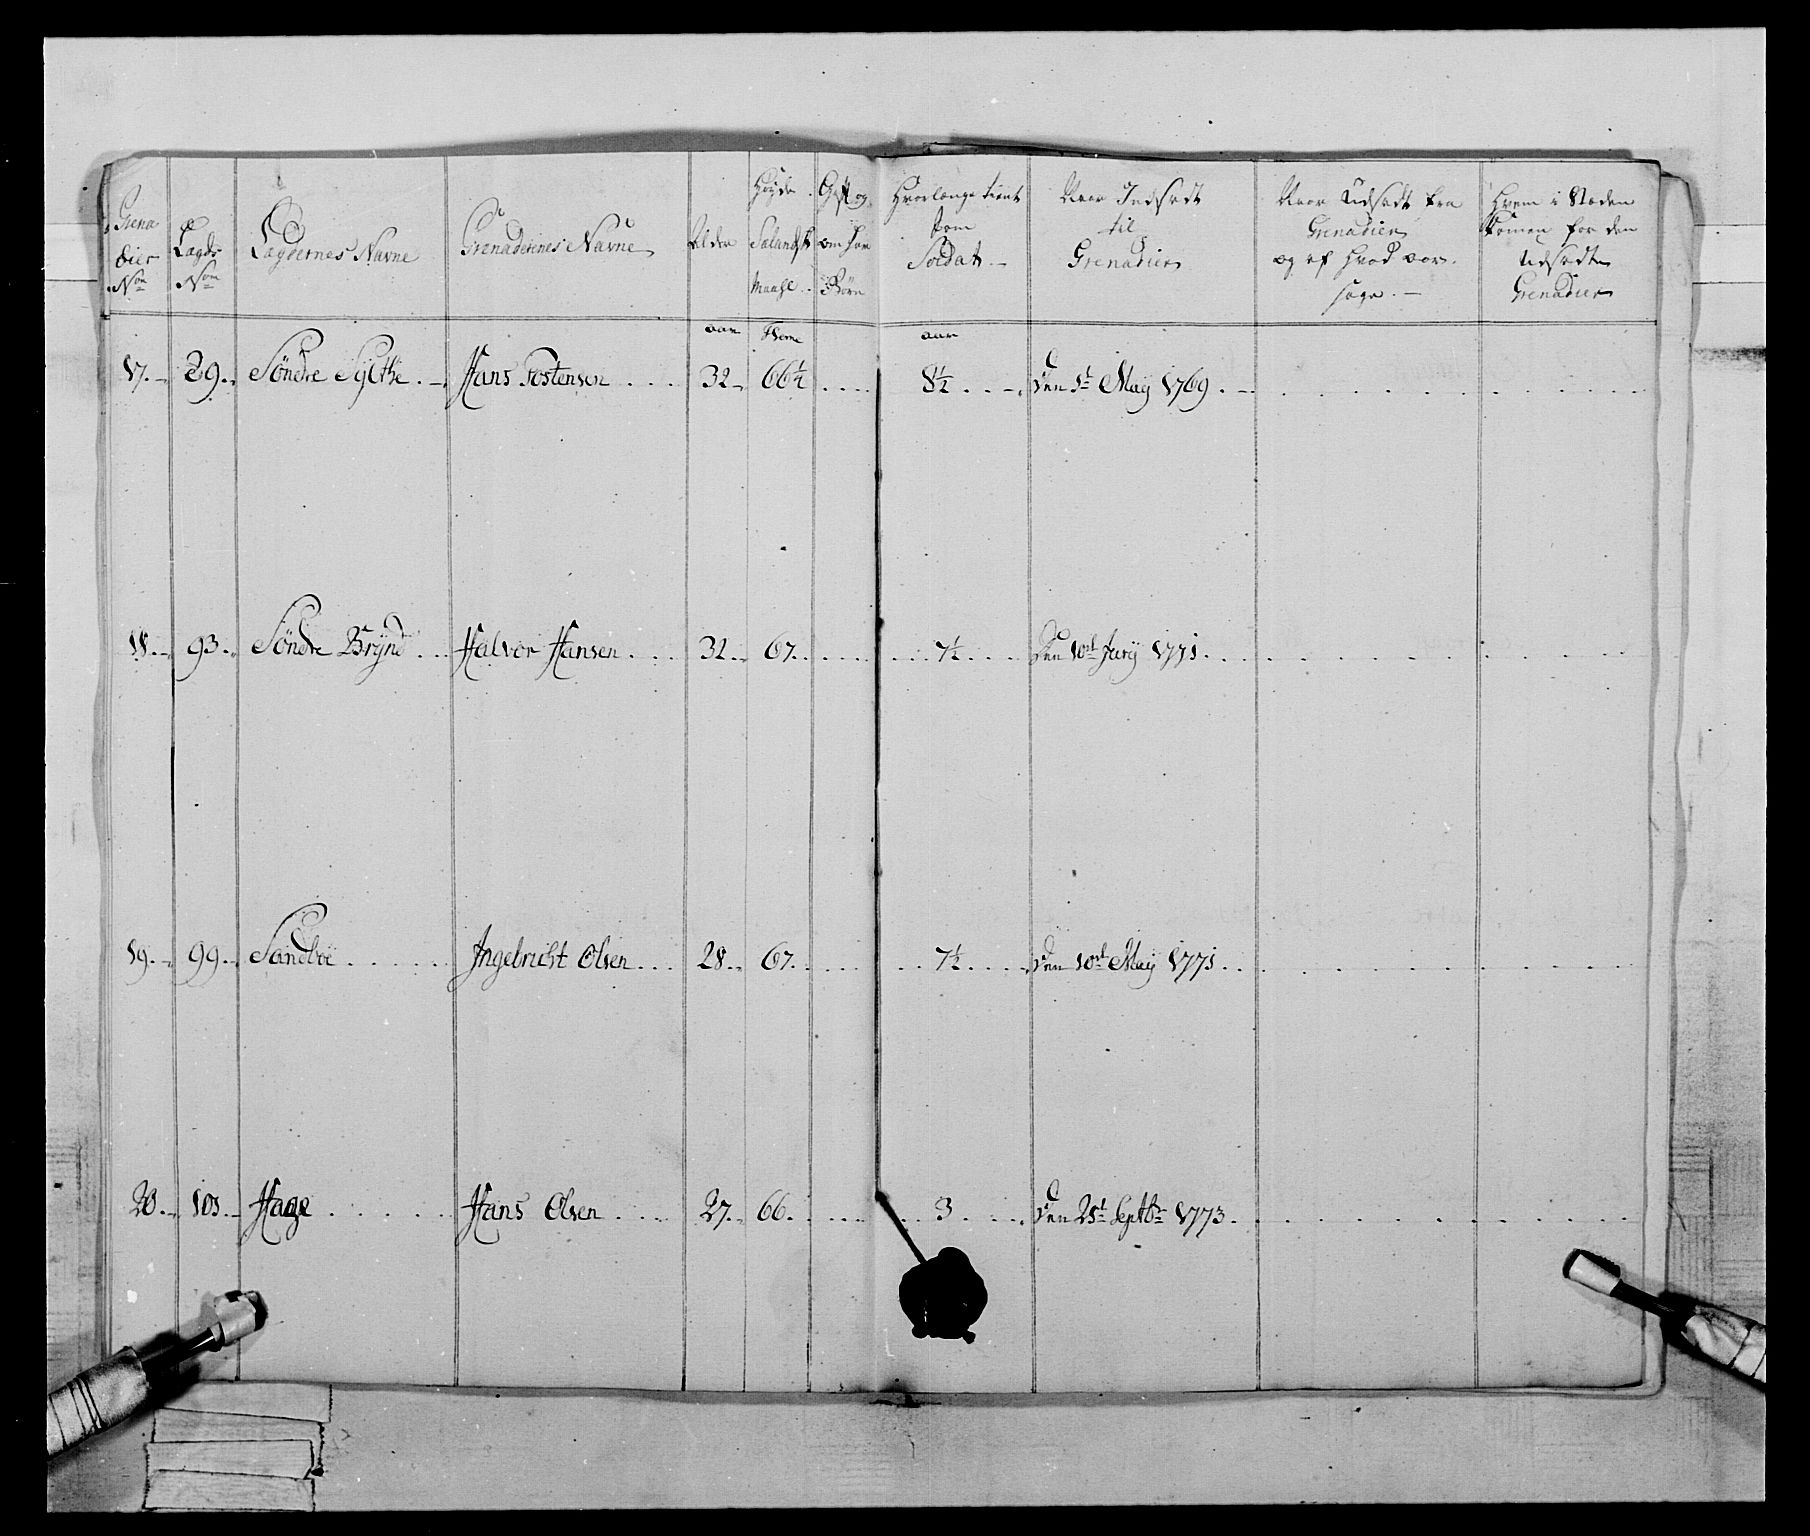 Grena
dier
Nom
Lagds
Nom
Lagdernes Navne
Grenaderenes Navne
Alder
Høyde
Salandsk
Maahl
Gift og
om har
Børn
Hvorlænge tient
som
Soldat
Naar Indsadt
til
Grenadier
Naar Udsadt fra
Grenadier
og af hvad aar-
sage.
Hvem i Stæden
komen for den
Udsadte
Grenadier
aar Tomе aar
17. 89. Søndre Sylthe Hans Tostensen 32 66½ 8½ Den 1t May 1769
18. 93. Søndre Brynd Halvor Hansen 32 67 7½ Den 10de 1771
19. 99. Sandboe Ingebricht Olsen 28 67 7½ Den 10de May 1771
20. 101. Hage Hans Olsen 27 66 3 Den 21t Septbr 1773